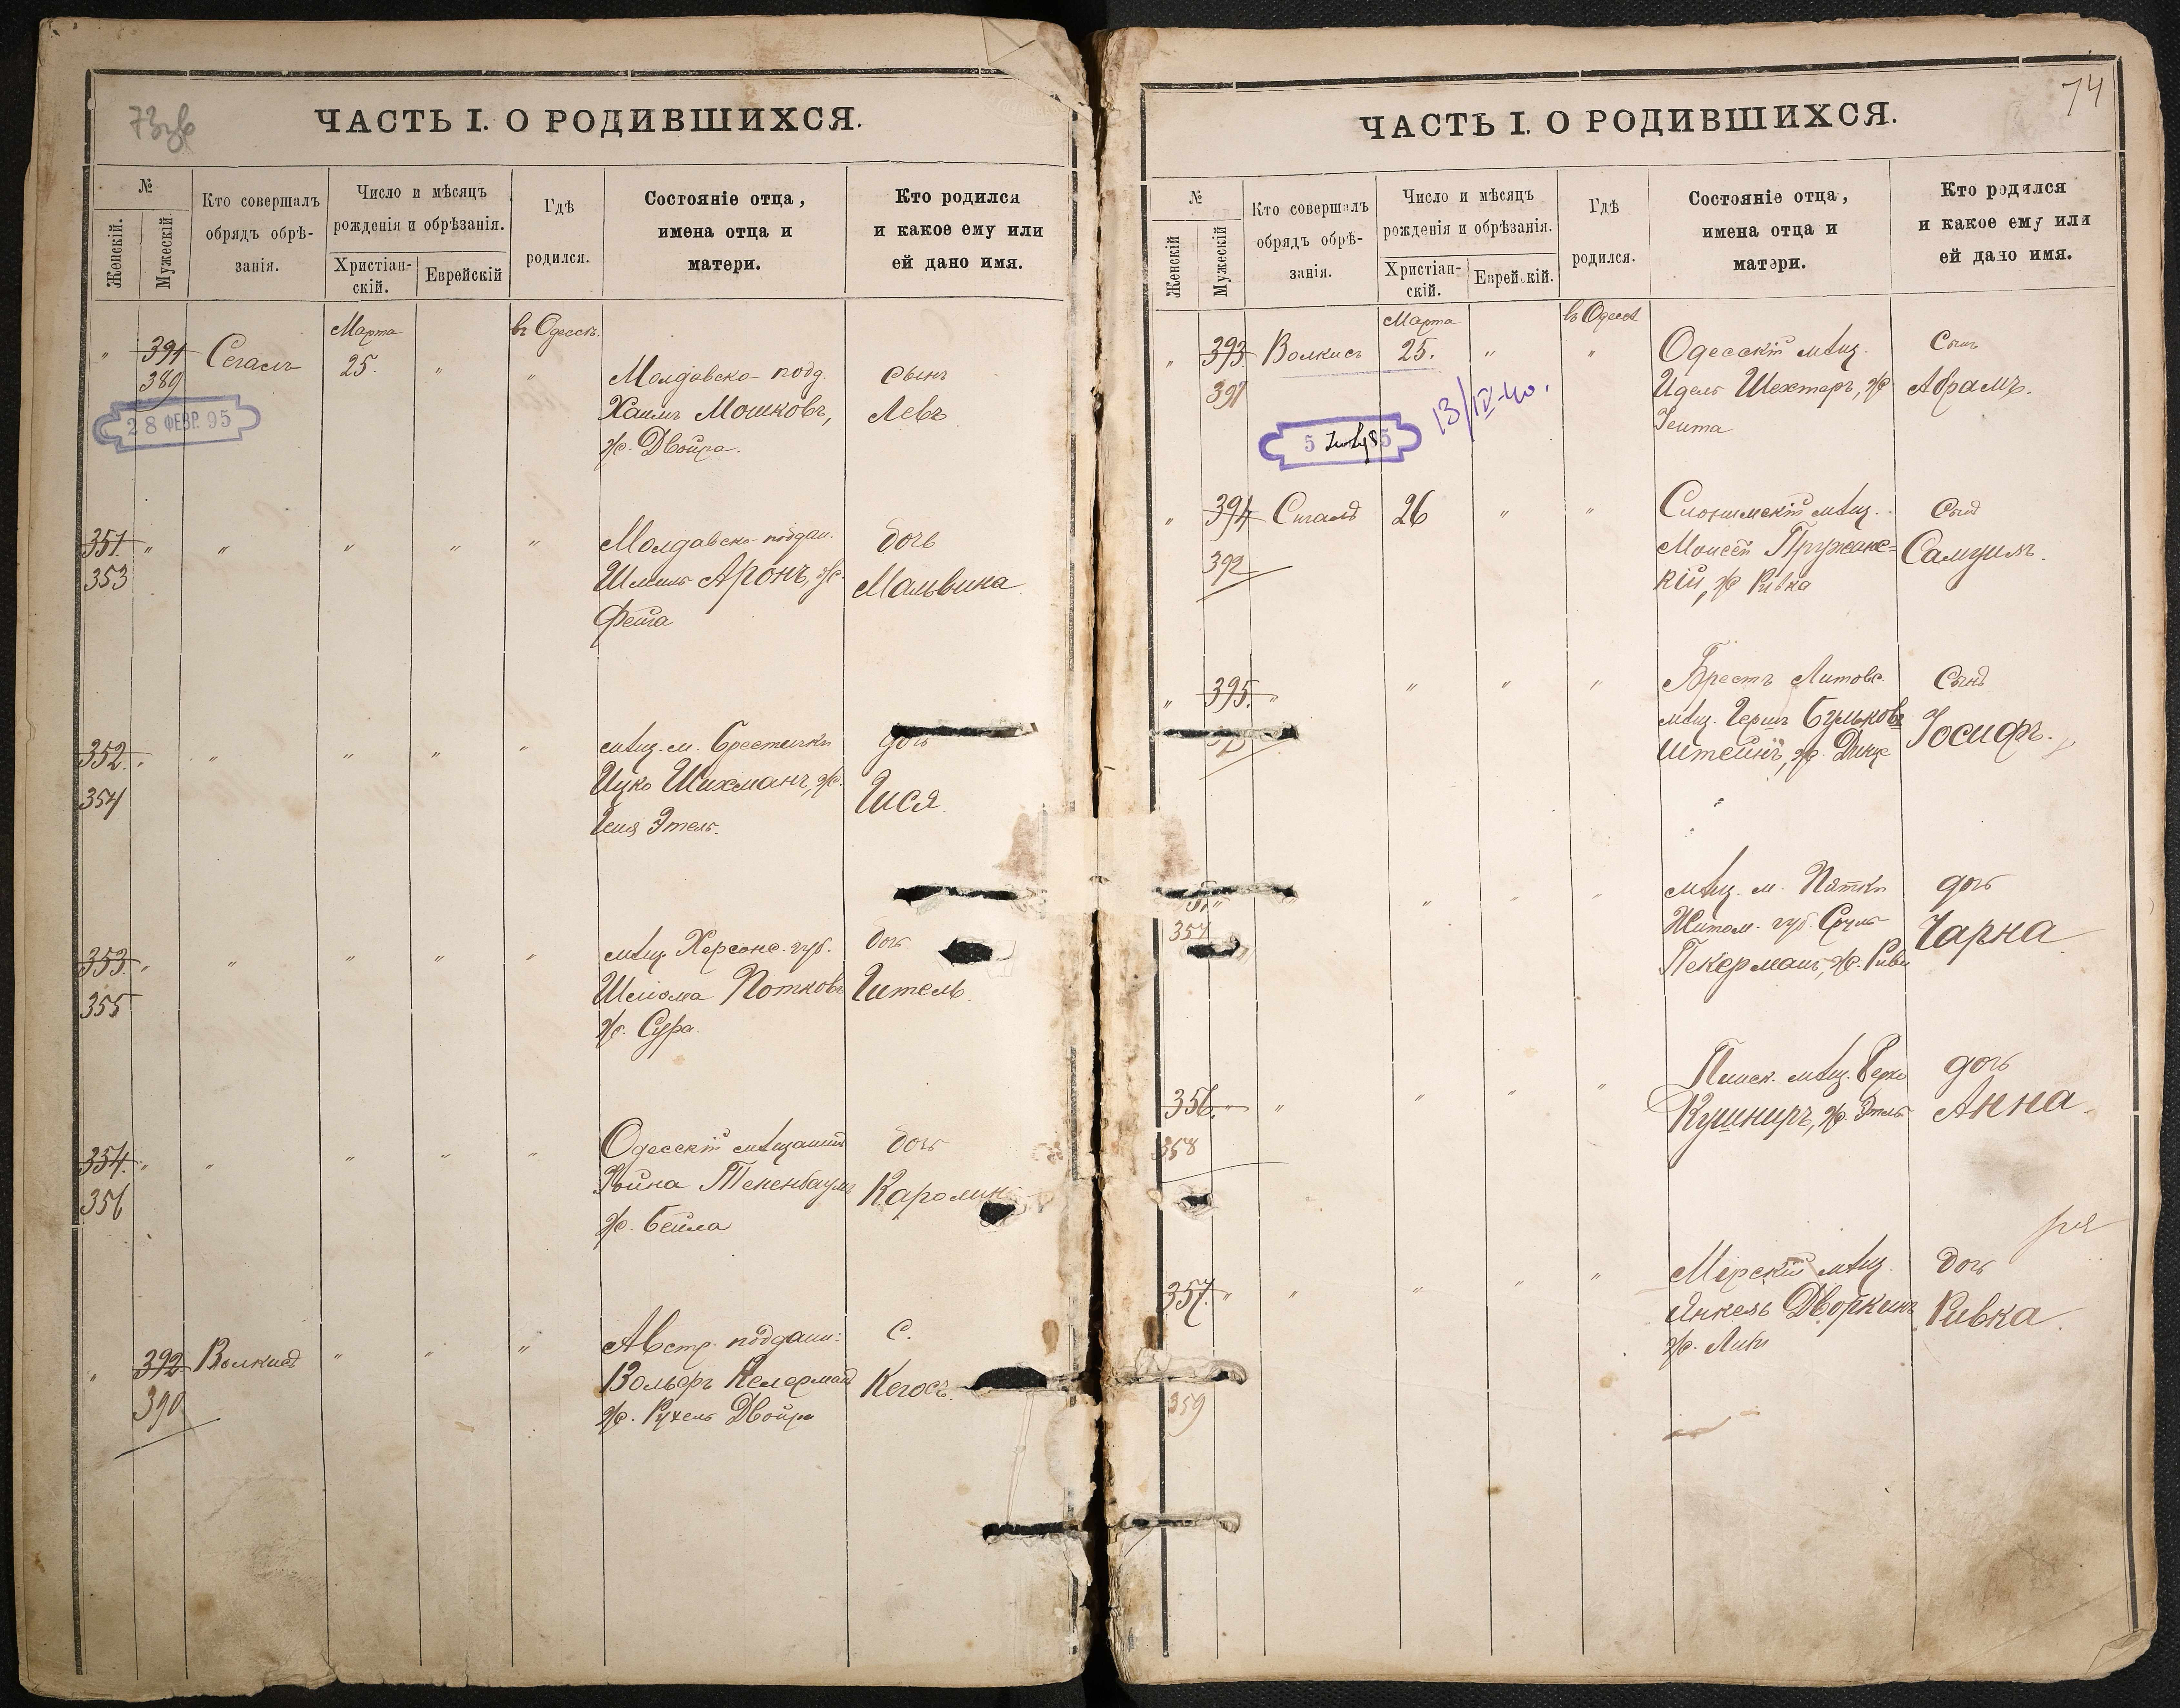 73об
ЧАСТЬ I. О РОДИВШИХСЯ.
№
Женскій.
Мужескій
Кто совершалъ
обрядъ обрѣ-
занія.
Число и мѣсяцъ
рожденія и обрѣзанія.
Христіан-
скій.
Еврейскій
Гдѣ
родился.
Состояніе отца,
имена отца и
матери.
Кто родился
и какое ему или
ей дано имя.
Марта
въ Одессѣ.
" 391 Сегалъ 25. " "
389
28 ФЕВР. 95
Молдавско-подд.
Хаимъ Мошковъ,
ж. Двойра.
Сынъ
Левъ
351 " " " " "
353
Молдавско-поддан.
Шлема Аронъ, ж.
Фейга
дочь
Мальвина
352. " " " " "
354
мѣщ. м. Брестечки
Ицко Шихманъ, ж.
Геня Этель.
дочь
Гися
353. " " " " "
355
мѣщ. Херсонс. губ.
Шлома Потковъ
ж. Сура.
дочь
Гитель.
354. " " " " "
356
Одесскій мѣщанинъ
Тененбаумъ
ж. Бейла
дочь
Каролин
" 392 Волкисъ " " "
390
Австр. поддан:
Вольфъ Келерманъ
ж. Рухель Двойра
С.
74
ЧАСТЬ I. О РОДИВШИХСЯ.
№
Женскій
Мужескій
Кто совершалъ
обрядъ обрѣ-
занія.
Число и мѣсяцъ
рожденія и обрѣзанія.
Христіан-
скій.
Еврейскій.
Гдѣ
родился.
Состояніе отца,
имена отца и
матери.
Кто родился
и какое ему или
ей дано имя.
Марта
въ Одессѣ
" 393 Волкисъ 25. " "
391
13/IV-40.
Одесскій мѣщ.
Идель Шехтеръ, ж
Гента
Сынъ
Абрамъ.
" 394 Сигалъ 26 " "
392
Слонимскій мѣщ.
Моисей Пружанс=
кій, ж Ривка
Сынъ
Самуилъ.
" 395. " " " "
Брестъ Литовс.
мѣщ. Гершъ Бульков
штейнъ, ж.
Сынъ
Іосифъ.
357
мѣщ. м. Пятки
Житом. губ. Сруль
Пекерманъ, ж. Риви
дочь
Чарна
356. " " " " "
358
Пинск. мѣщ. Берко
Кушниръ, ж. Этель
дочь
Анна.
357. " " " " "
359
Мирскій мѣщ.
Янкель Дворкинъ
ж. Либи
дочь
Ривка.